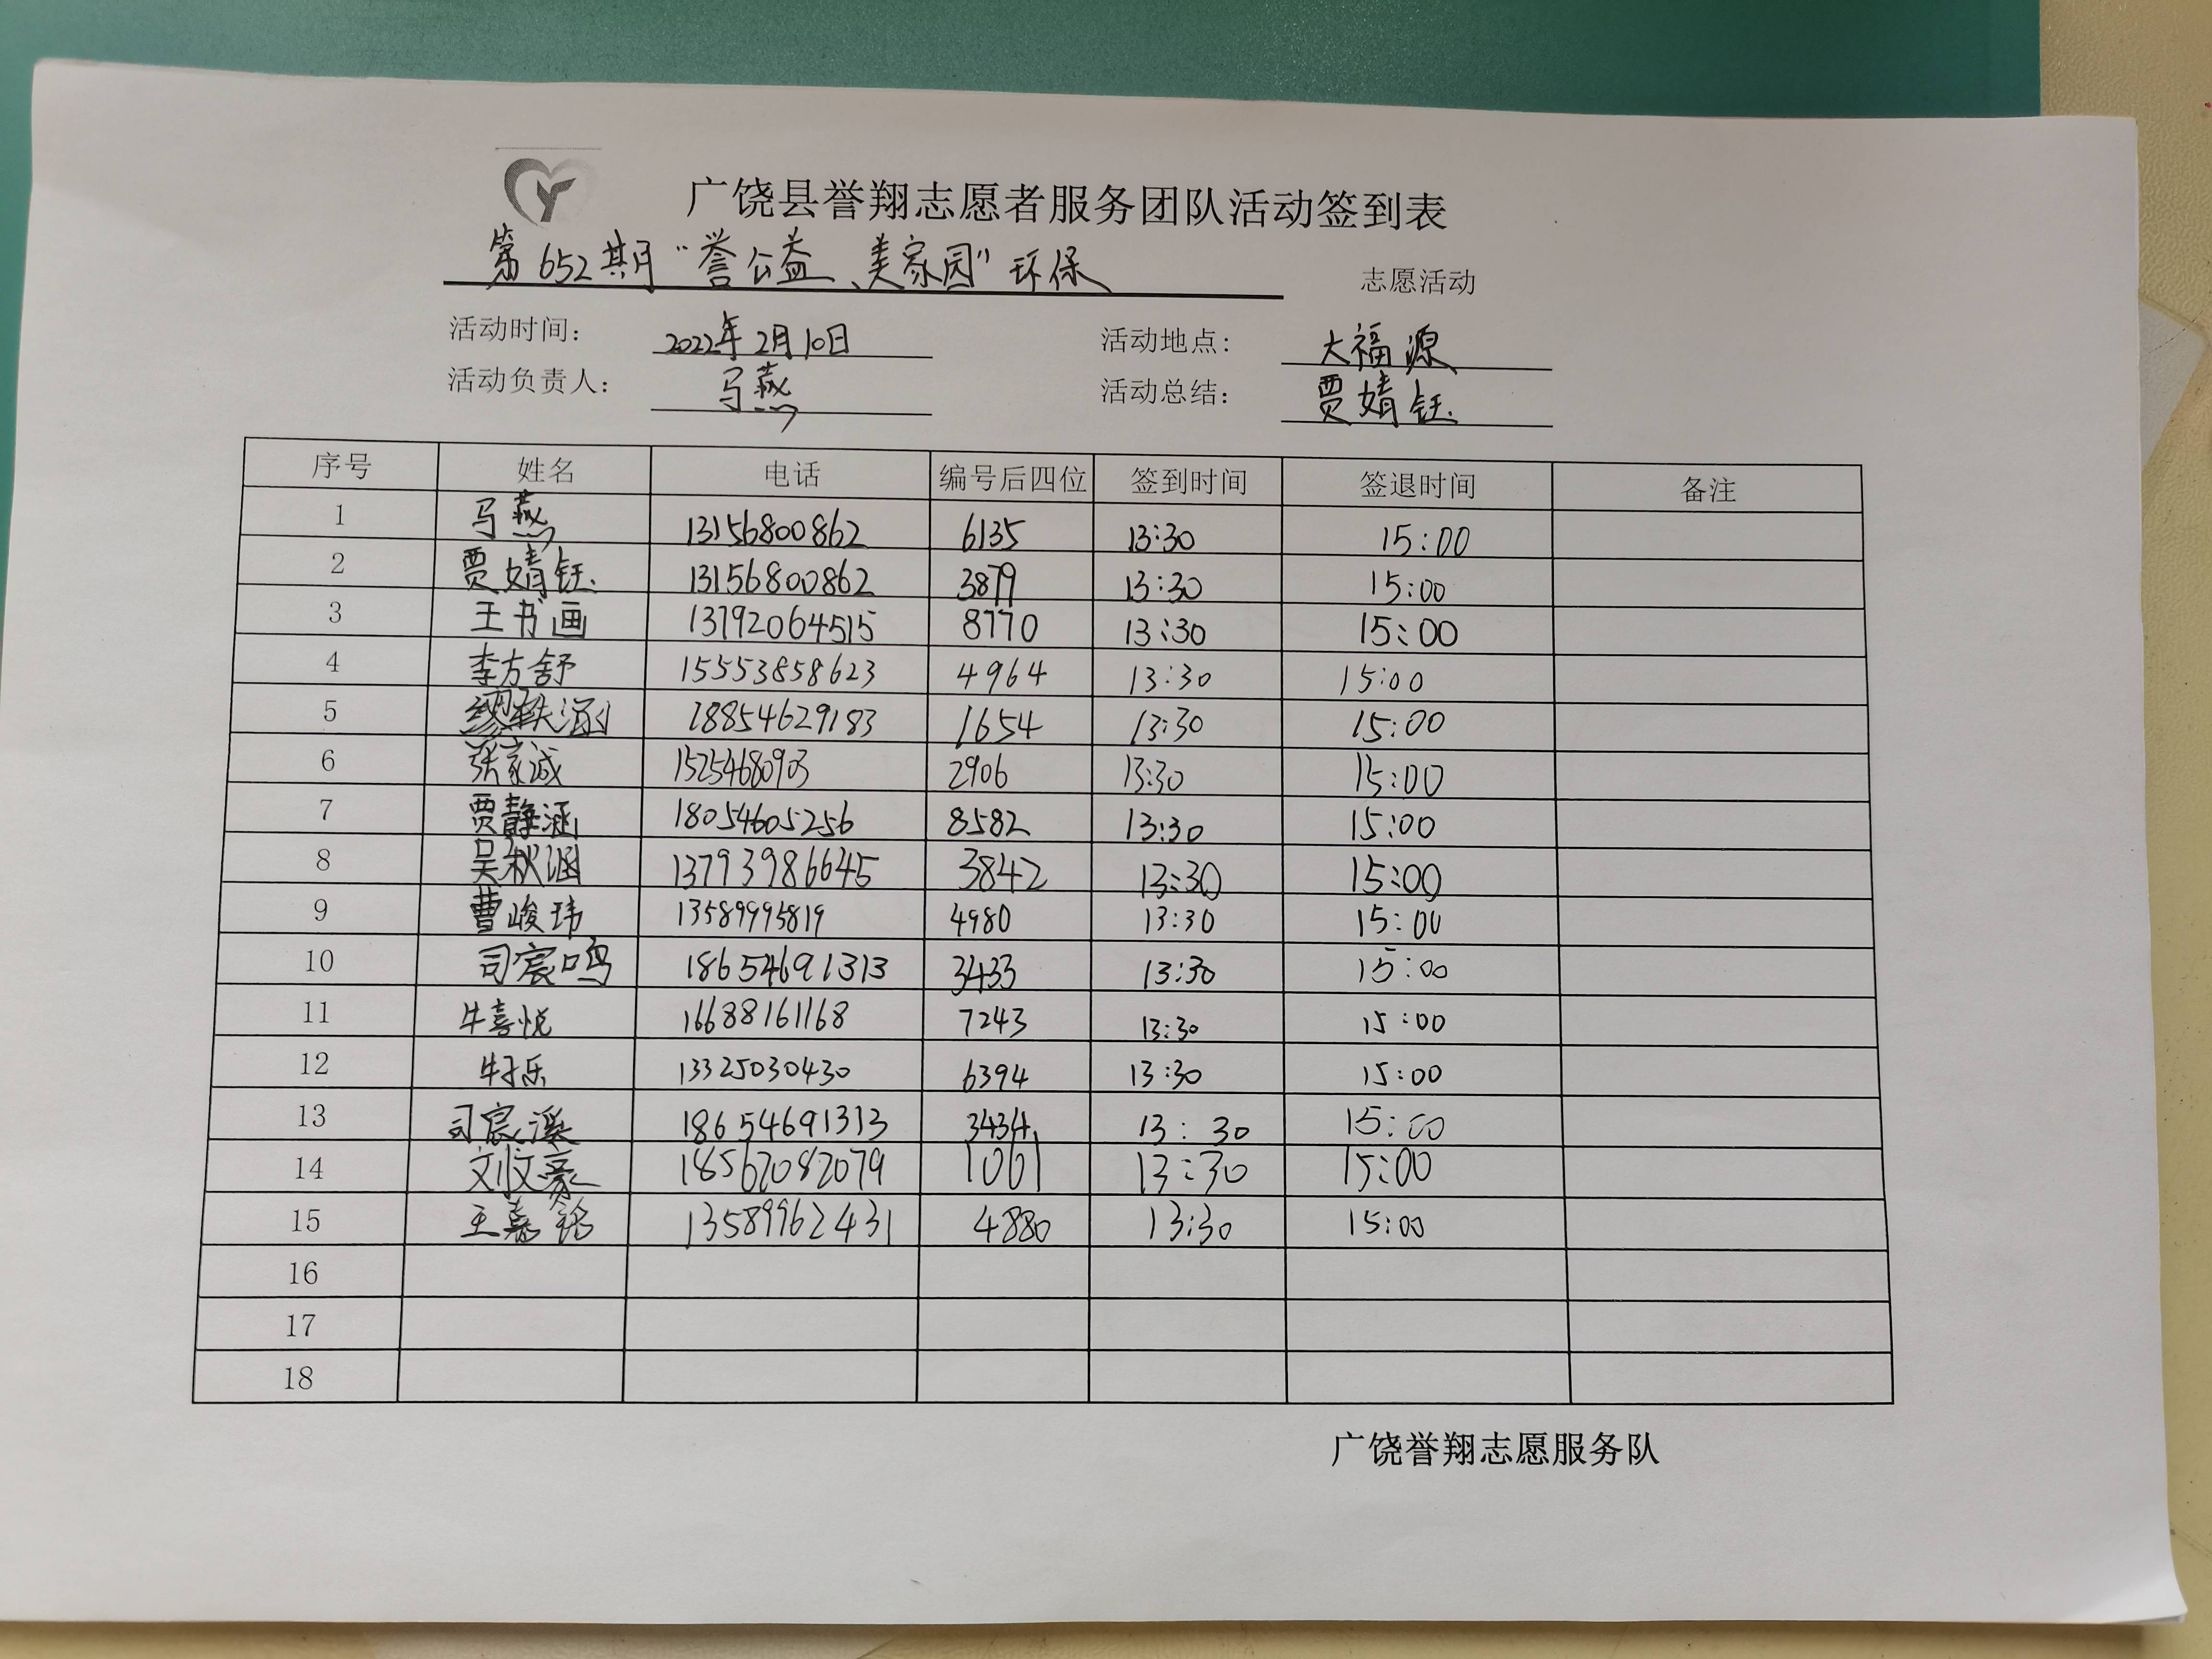 广饶县誉翔志愿者服务团队活动签到表
第652期“誉公益、美家园”环保 志愿活动
活动时间: 2022年2月10日 活动地点: 大福源
活动负责人: 马燕 活动总结: 贾婧钰
序号 姓名 电话 编号后四位 签到时间 签退时间 备注
1 马燕 13156800862 6135 13:30 15:00
2 贾婧钰 13156800862 3879 13:30 15:00
3 王书画 13792064515 8770 13:30 15:00
4 李方舒 15553858623 4964 13:30 15:00
5 18854629183 1654 13:30 15:00
6 张家诚 15254680903 2906 13:30 15:00
7 贾静涵 18054605256 8582 13:30 15:00
8 吴秋涵 13793986645 3842 13:30 15:00
9 曹峻玮 13589995819 4980 13:30 15:00
10 司宸鸣 18654691313 3433 13:30 15:00
11 牛喜悦 16688161168 7243 13:30 15:00
12 牛子乐 13325030430 6394 13:30 15:00
13 司宸溪 18654691313 3434 13:30 15:00
14 刘文豪 18562082079 1001 13:30 15:00
15 王嘉铭 13589962431 4880 13:30 15:00
16
17
18
广饶誉翔志愿服务队